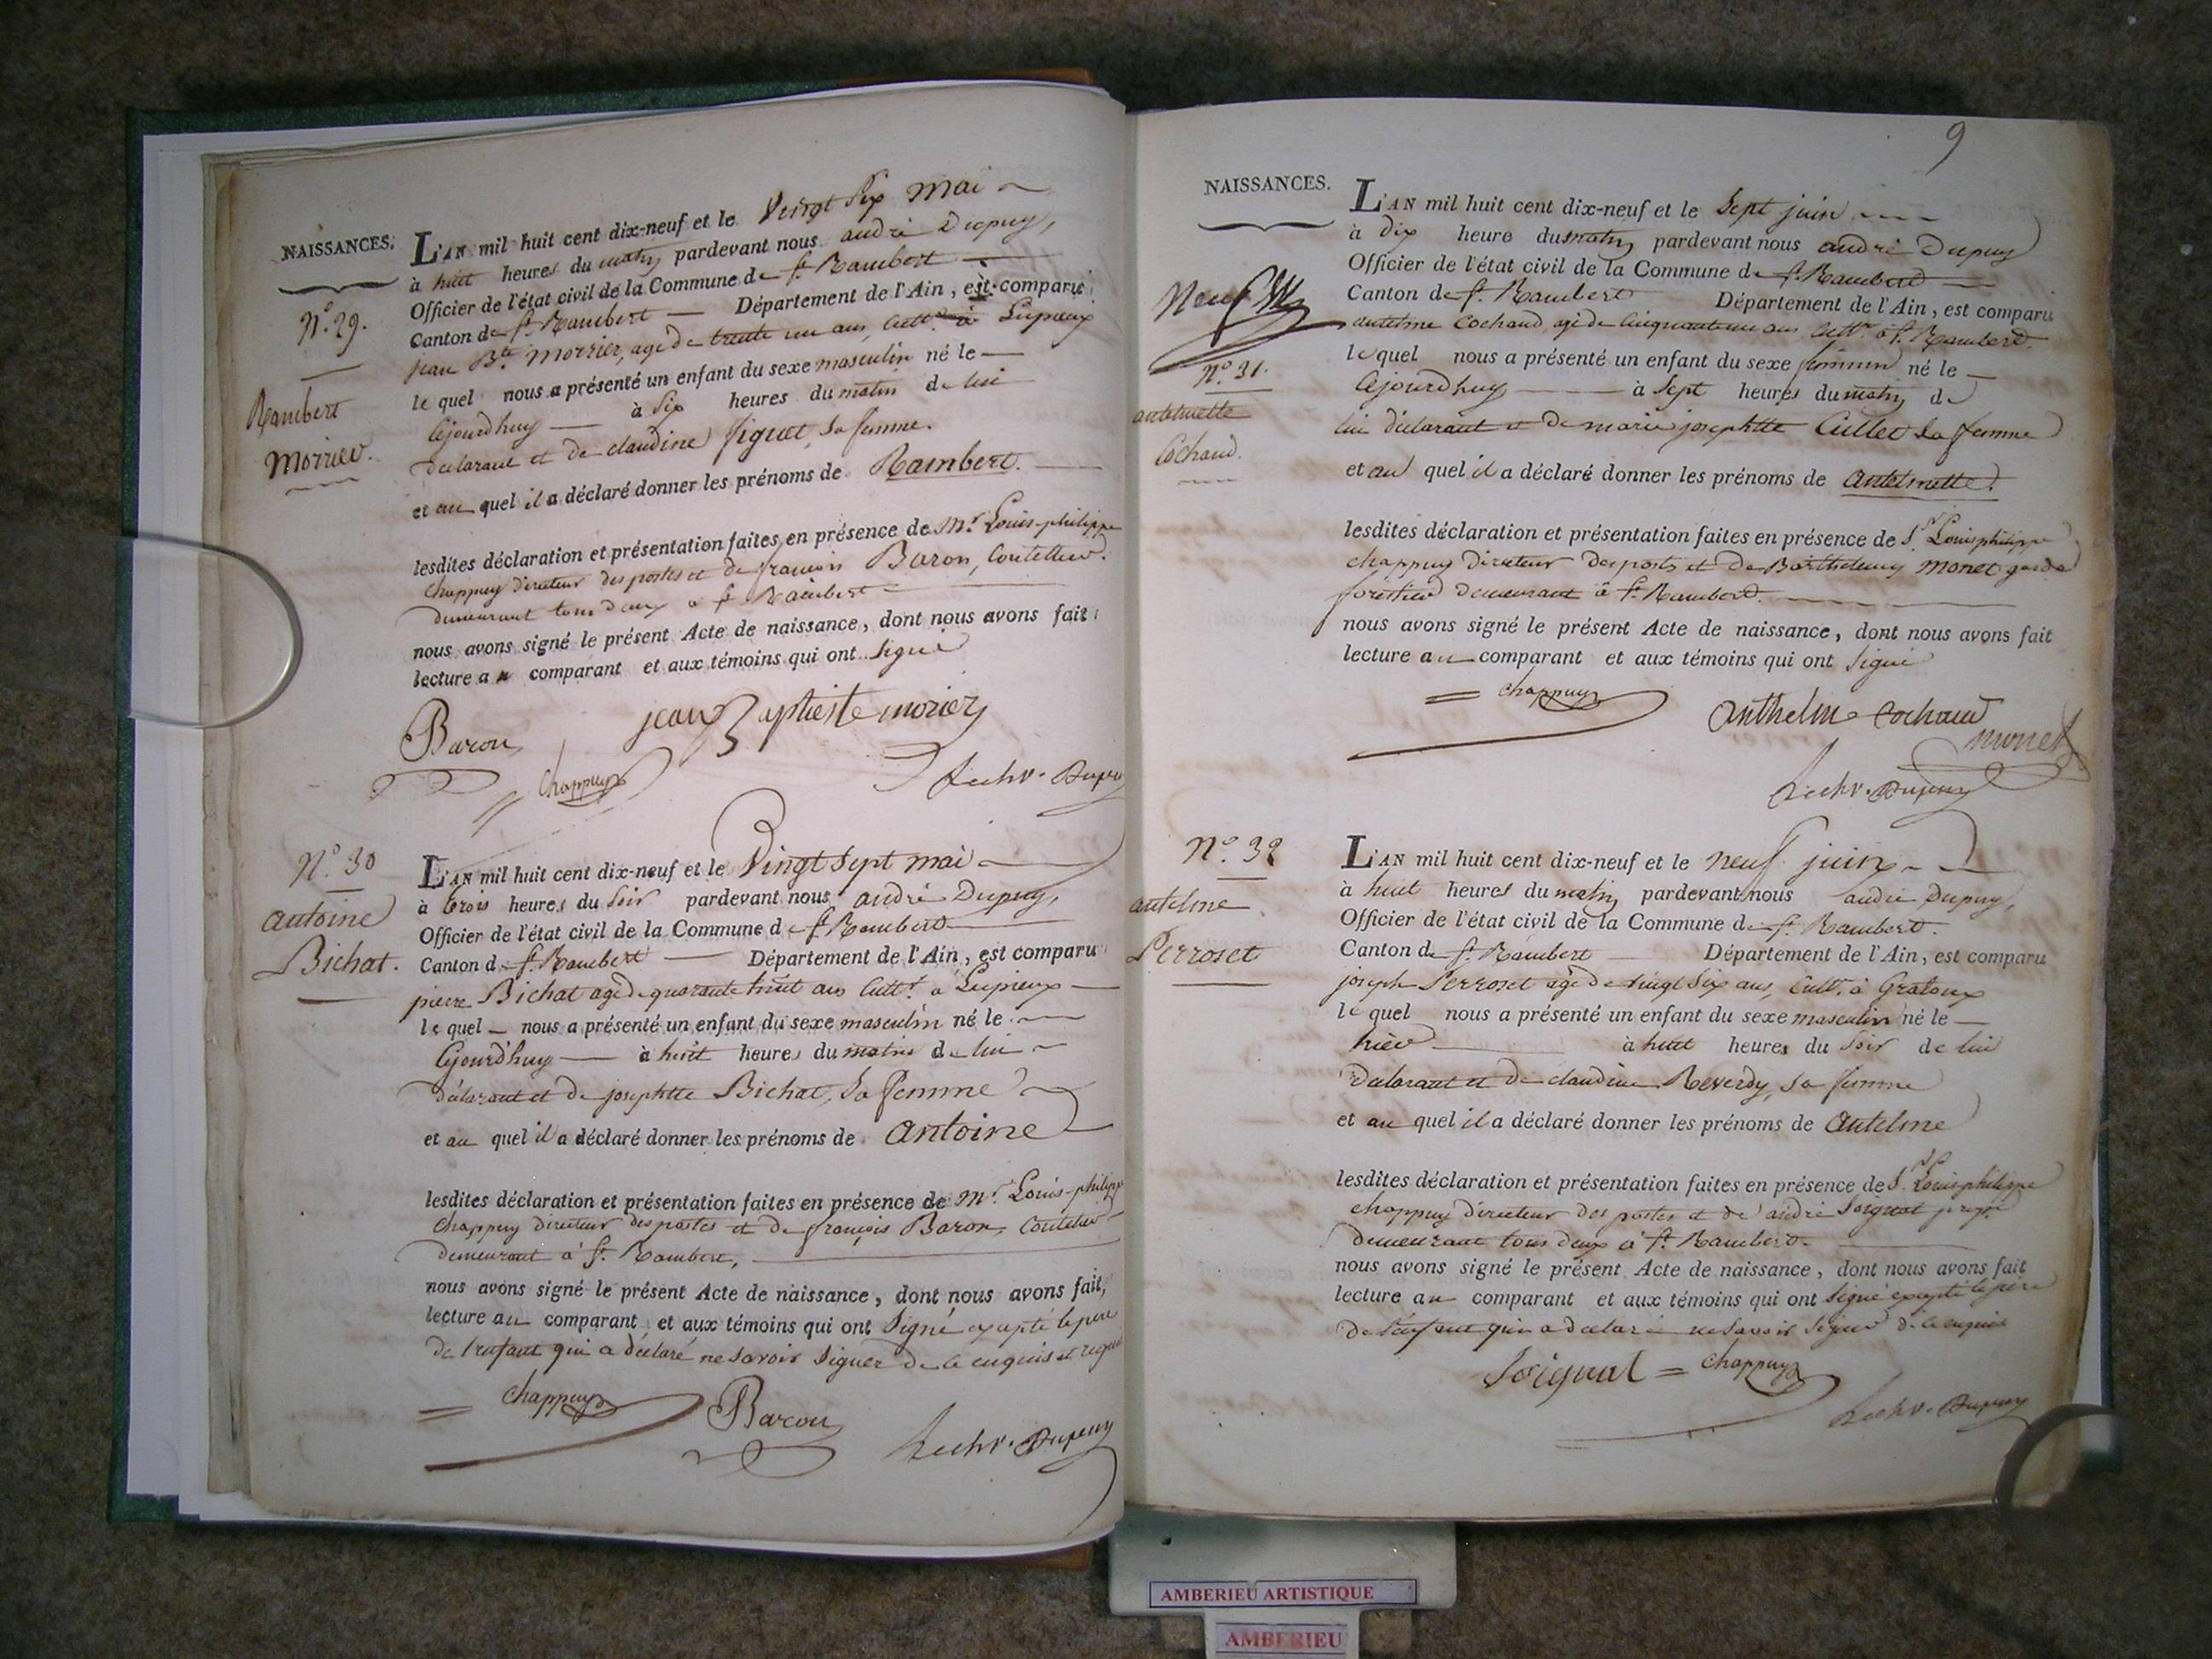 NAISSANCES.
N.° 29.
Rambert
Morrier.
L'AN mil huit cent dix-neuf et le Vingt Six mai
à huit heures du matin pardevant nous andré Dupuy,
Officier de l'état civil de la Commune de St. Rambert
Canton de St. Rambert Département de l'Ain, est comparu
jean Bte. Morrier, agé de trente un ans, Cultr. à Lupieux
lequel nous a présenté un enfant du sexe masculin né le
Cejourdhuy à Six heures du matin de lui
declarant et de claudine figuet, Sa femme.
et au quel il a déclaré donner les prénoms de Rambert.
lesdites déclaration et présentation faites en présence de Mr. Louis-philippe
Chappuy directeur des postes et de françois Baron, Coutellier.
demeurant tous deux à St. Rambert
nous avons signé le présent Acte de naissance, dont nous avons fait
lecture au comparant et aux témoins qui ont Signé
Baron jean Baptieste morier
Chappuy Dupuy
N.° 30
antoine
Bichat.
L'AN mil huit cent dix-neuf et le Vingt Sept mai
à trois heures du Soir pardevant nous andré Dupuy,
Officier de l'état civil de la Commune de St. Rambert
Canton de St. Rambert Département de l'Ain, est comparu
pierre Bichat agé de quarante huit ans Cultr. à Lupieux
lequel nous a présenté un enfant du sexe masculin né le
Cejourd'huy à huit heures du matin de lui
déclarant et de josephtte Bichat, Sa femme
et au quel il a déclaré donner les prénoms de antoine
lesdites déclaration et présentation faites en présence de Mr. Louis-philippe
Chappuy directeur des postes et de françois Baron, Coutelier
demeurant à St. Rambert,
nous avons signé le présent Acte de naissance, dont nous avons fait,
lecture au comparant et aux témoins qui ont Signé excepté le pere
de l'enfant qui a déclaré ne Savoir Signer de ce enquis et requis
chappuy Baron Dupuy
9
NAISSANCES.
Neuf
N.° 31.
antelmette
Cochaud.
L'AN mil huit cent dix-neuf et le Sept juin
à dix heure du matin pardevant nous andré Dupuy
Officier de l'état civil de la Commune de St. Rambert
Canton de St. Rambert Département de l'Ain, est comparu
antelme Cochaud, agé de Cinquante un ans, Cultr. à St. Rambert
lequel nous a présenté un enfant du sexe féminin né le
Cejourdhuy à Sept heures du matin de
lui déclarant et de marie josephtte Cullet Sa femme
et au quel il a déclaré donner les prénoms de antelmette.
lesdites déclaration et présentation faites en présence de Sr. Louis philippe
chappuy directeur des postes et de Barthelemy monet garde
forestier demeurant à St. Rambert.
nous avons signé le présent Acte de naissance, dont nous avons fait
lecture au comparant et aux témoins qui ont Signé
chappuy anthelme cochaud
monet
Dupuy
N.° 32
antelme
Perroset
L'AN mil huit cent dix-neuf et le neuf juin
à huit heures du matin pardevant nous andré Dupuy,
Officier de l'état civil de la Commune de St. Rambert.
Canton de St. Rambert Département de l'Ain, est comparu
joseph Perroset agé de vingt Six ans, Cultr. à Gratoux
lequel nous a présenté un enfant du sexe masculin né le
hier à huit heures du Soir de lui
déclarant et de claudine Reverdy, Sa femme
et au quel il a déclaré donner les prénoms de antelme
lesdites déclaration et présentation faites en présence de Sr. Louis philippe
chappuy directeur des postes et de andré Soignat
demeurant tous deux à St. Rambert.
nous avons signé le présent Acte de naissance, dont nous avons fait
lecture au comparant et aux témoins qui ont Signé excepté le père
de l'enfant qui a déclaré ne Savoir Signer de ce enquis
Soignat = chappuy
Dupuy
AMBERIEU ARTISTIQUE
AMBERIEU